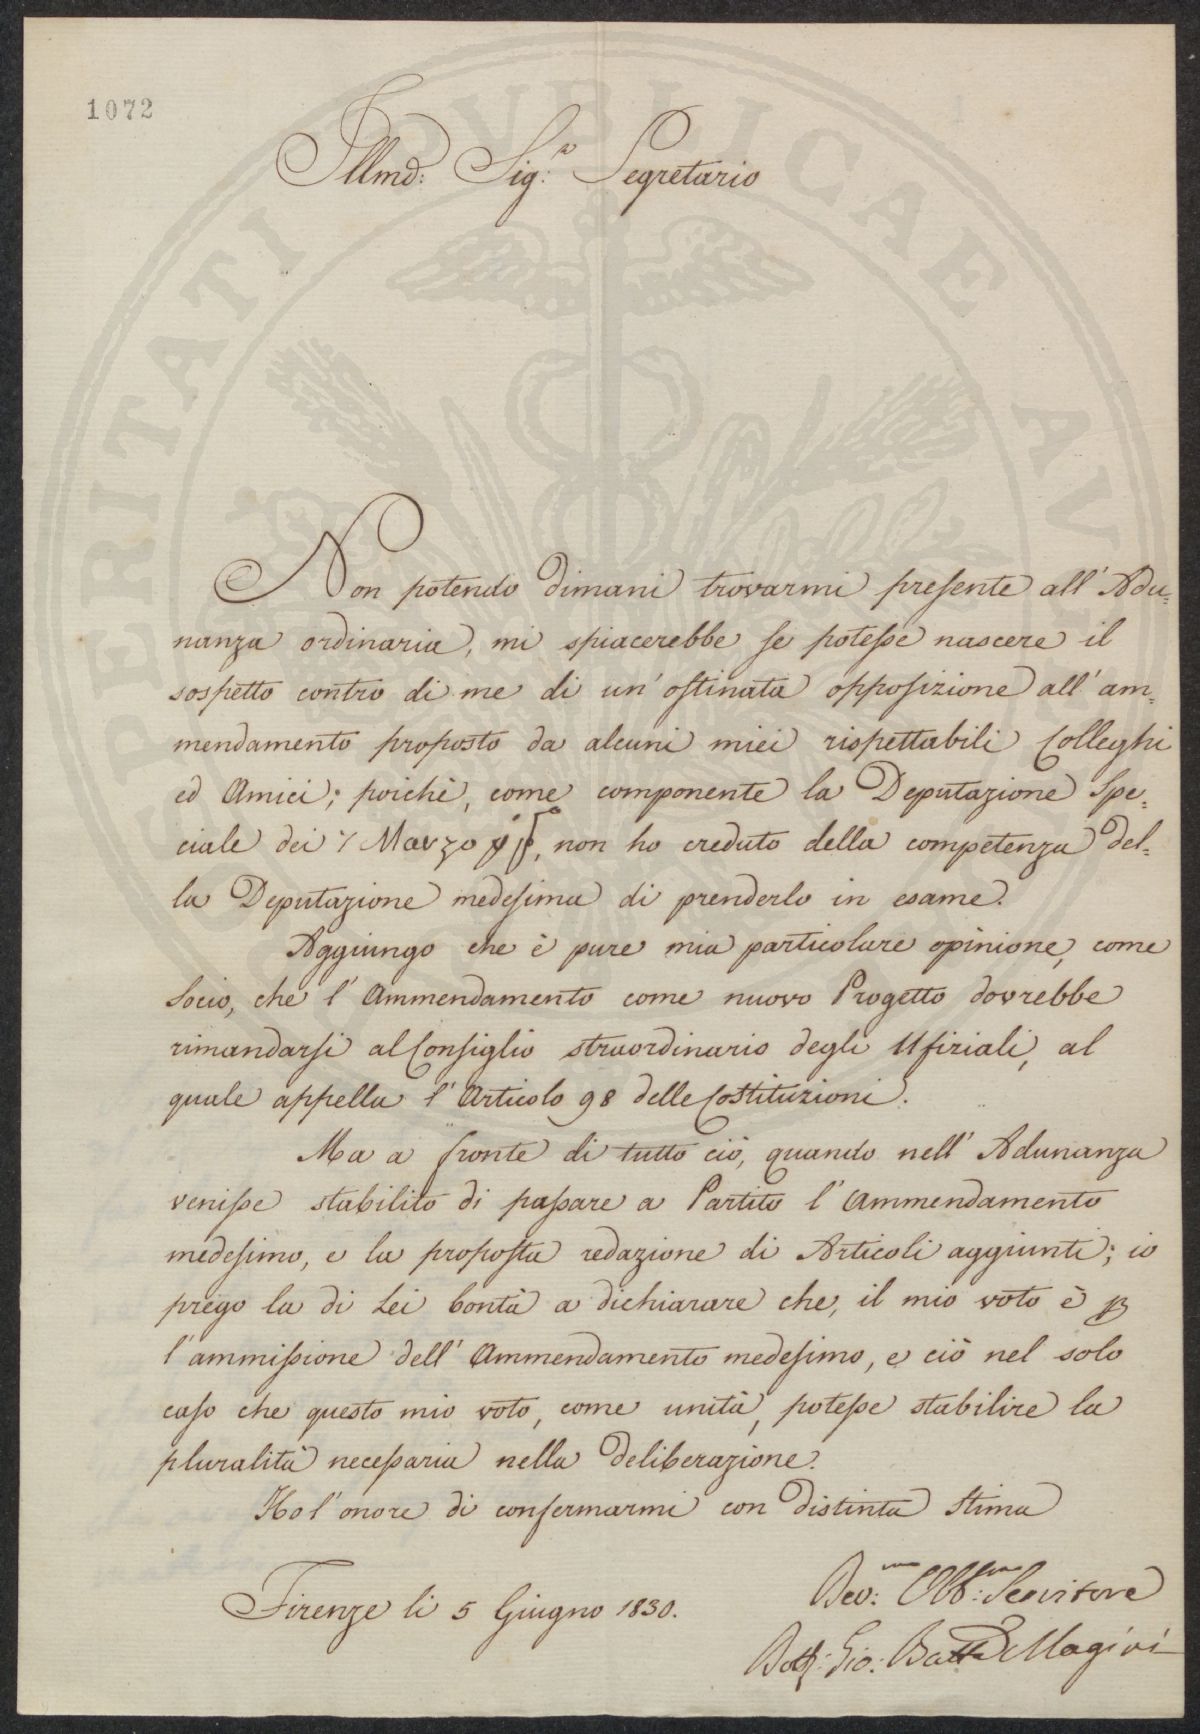 1072
Illmo: Sig:r Segretario
Non potendo dimani trovarmi presente all' Adu-
nanza ordinaria, mi spiacerebbe se potesse nascere il
sospetto contro di me di un' ostinata opposizione all' am-
mendamento proposto da alcuni miei rispettabili Colleghi
ed Amici; poichè, come componente la Deputazione Spe-
ciale dei 7 Marzo, non ho creduto della competenza del-
la Deputazione medesima di prenderlo in esame.
Aggiungo che è pure mia particolare opinione, come
Socio, che l' Ammendamento come nuovo Progetto dovrebbe
rimandarsi al Consiglio straordinario degli Ufiziali, al
quale appella l' Articolo 98 delle Costituzioni.
Ma a fronte di tutto ciò, quando nell' Adunanza
venisse stabilito di passare a Partito l' Ammendamento
medesimo, e la proposta redazione di Articoli aggiunti; io
prego la di Lei bontà a dichiarare che, il mio voto è p
l' ammissione dell' Ammendamento medesimo, e ciò nel solo
caso che questo mio voto, come unità, potesse stabilire la
pluralità necessaria nella deliberazione.
Ho l' onore di confermarmi con distinta stima
Dev:mo Obb:mo Servitore
Firenze li 5 Giugno 1830.
Dott: Gio: Batta Magini
OSPERITATI PVBLICAE AV